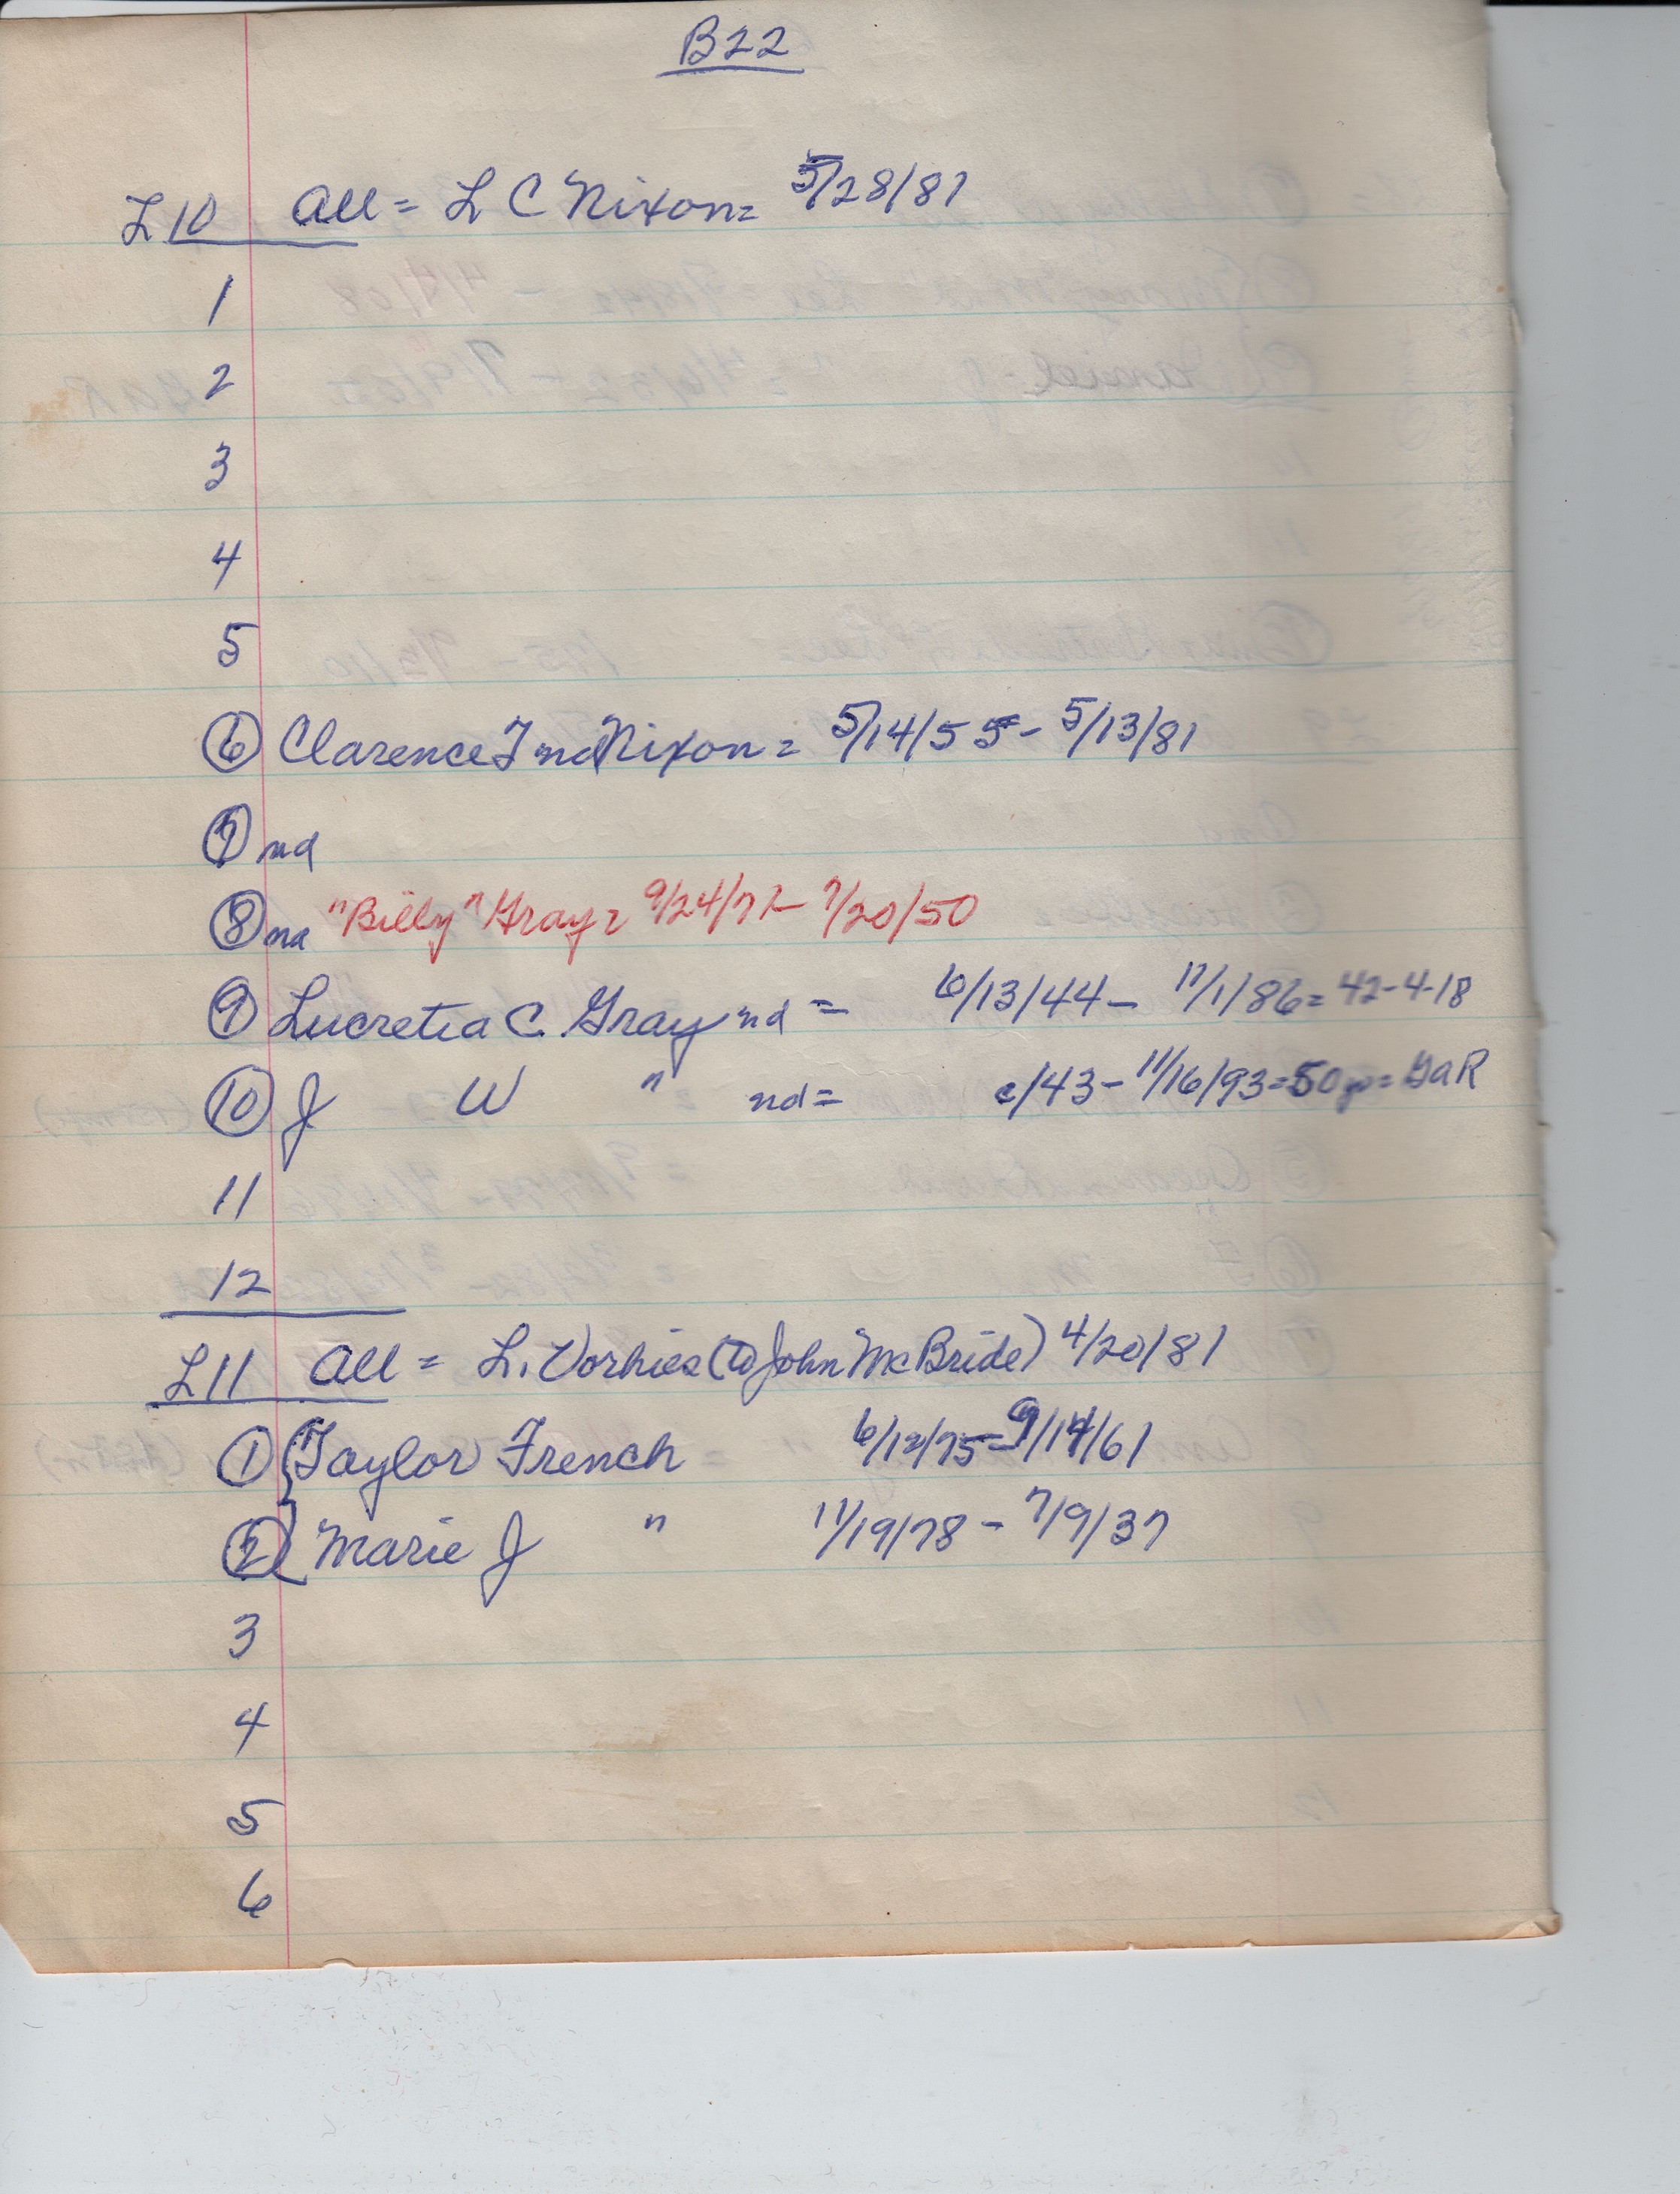 B22
L10 All = L C Nixon = 5/28/81
1
2
3
4
5
6 Clarence F nd Nixon = 5/14/55 - 5/13/81
7 nd
8 nd "Billy" Gray = 9/24/71 - 7/20/50
9 Lucretia C. Gray nd = 6/13/44 - 11/1/86 = 42-4-18
10 J W " nd = c/43 - 11/16/93 = 50 yr = GaR
11
12
L11 All = L. Vorhies (to John McBride) 4/20/81
1 { Taylor French 6/12/75 - 9/14/61
2 { Marie J " 11/19/78 - 7/9/37
3
4
5
6